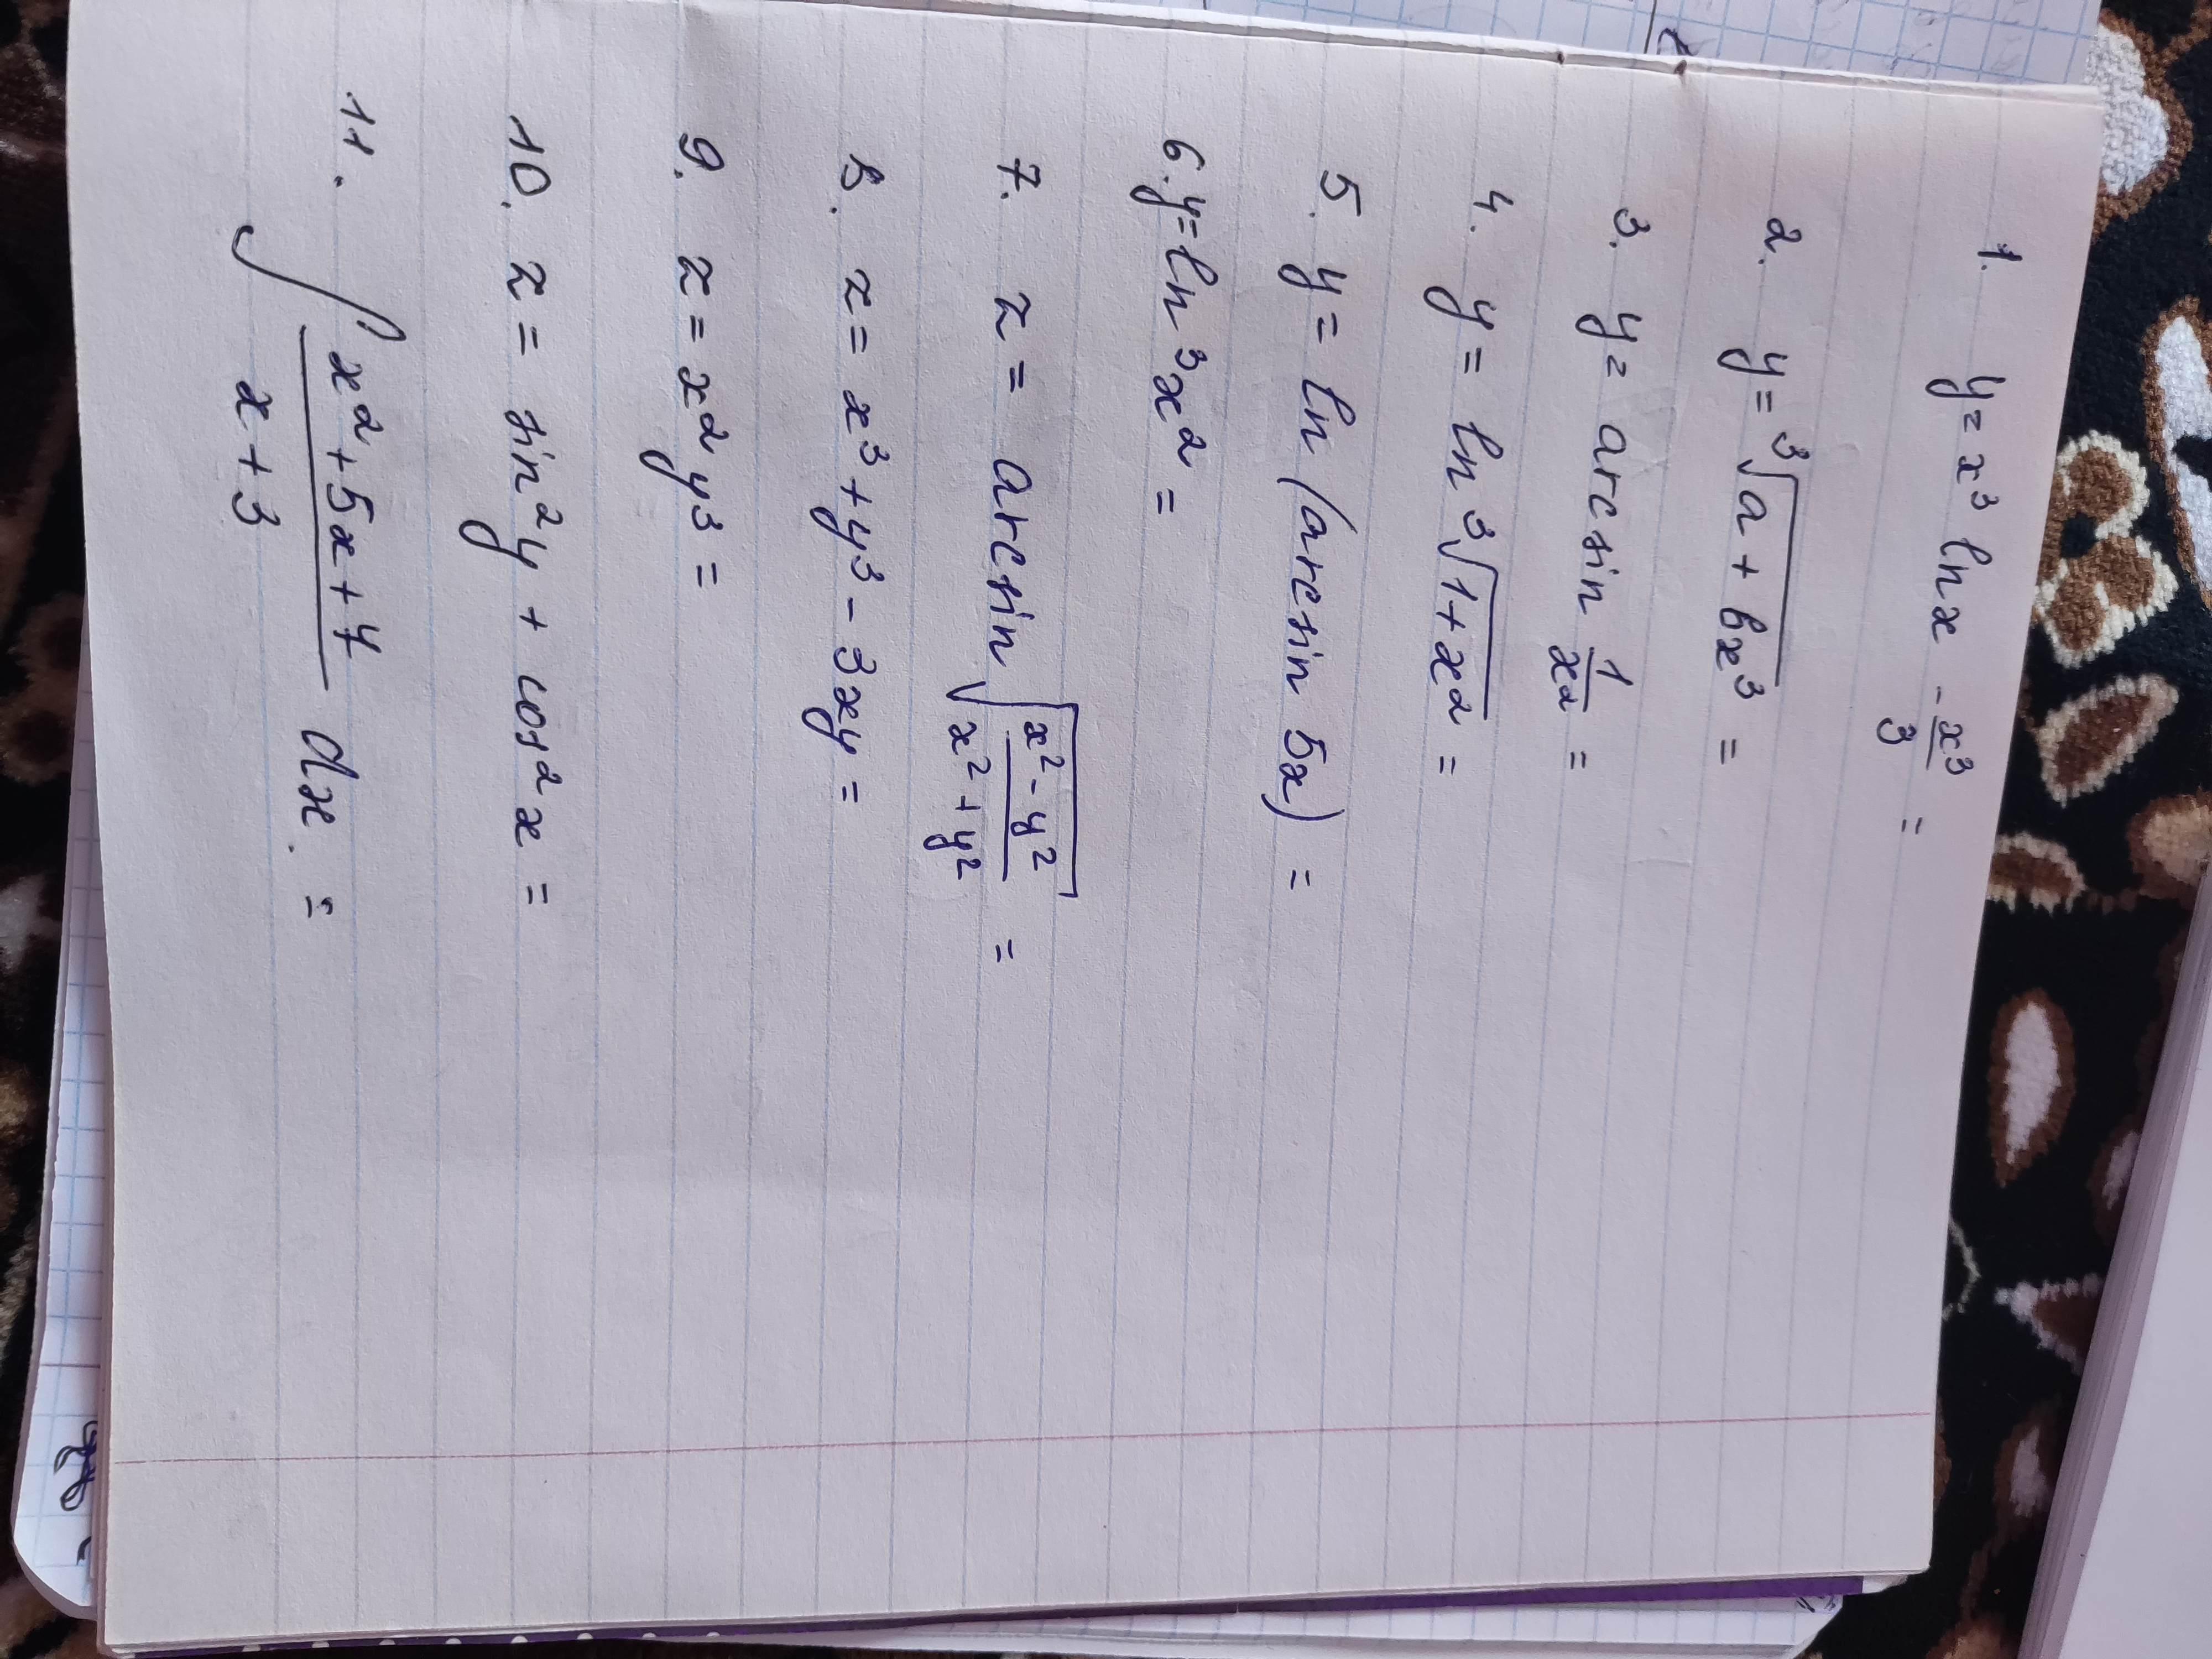 1. y = x³ ln x - x³/3 =
2. y = ³√(a + bx³) =
3. y = arcsin 1/x² =
4. y = ln ³√(1+x²) =
5. y = ln (arcsin 5x) =
6. y = ln³x² =
7. z = arcsin √((x² - y²)/(x² + y²)) =
8. z = x³ + y³ - 3xy =
9. z = x² y³ =
10. z = sin²y + cos²x =
11. ∫ (x² + 5x + 7)/(x + 3) dx. =